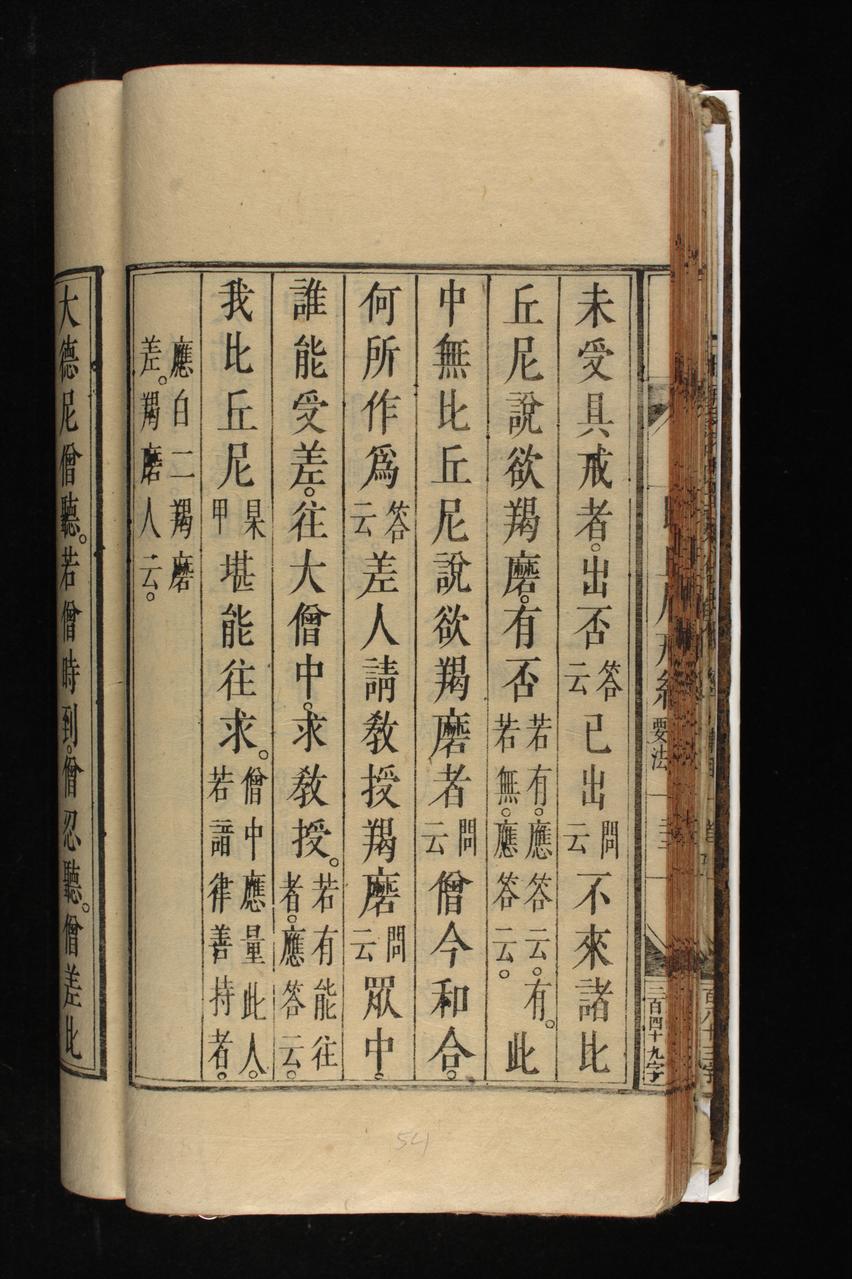 未受具戒者。出否答云已出問云不來諸比
丘尼說欲羯磨。有否若有。應答云。有。若無。應答云。此
中無比丘尼說欲羯磨者問云僧今和合。
何所作爲答云差人請敎授羯磨問云眾中。
誰能受差。往大僧中。求敎授。若有能往者。應答云。
我比丘尼某甲堪能往求。僧中應量此人。若諳律善持者。
應白二羯磨
差。羯磨人云。
大德尼僧聽。若僧時到。僧忍聽。僧差比
要法
三百四十九字
54